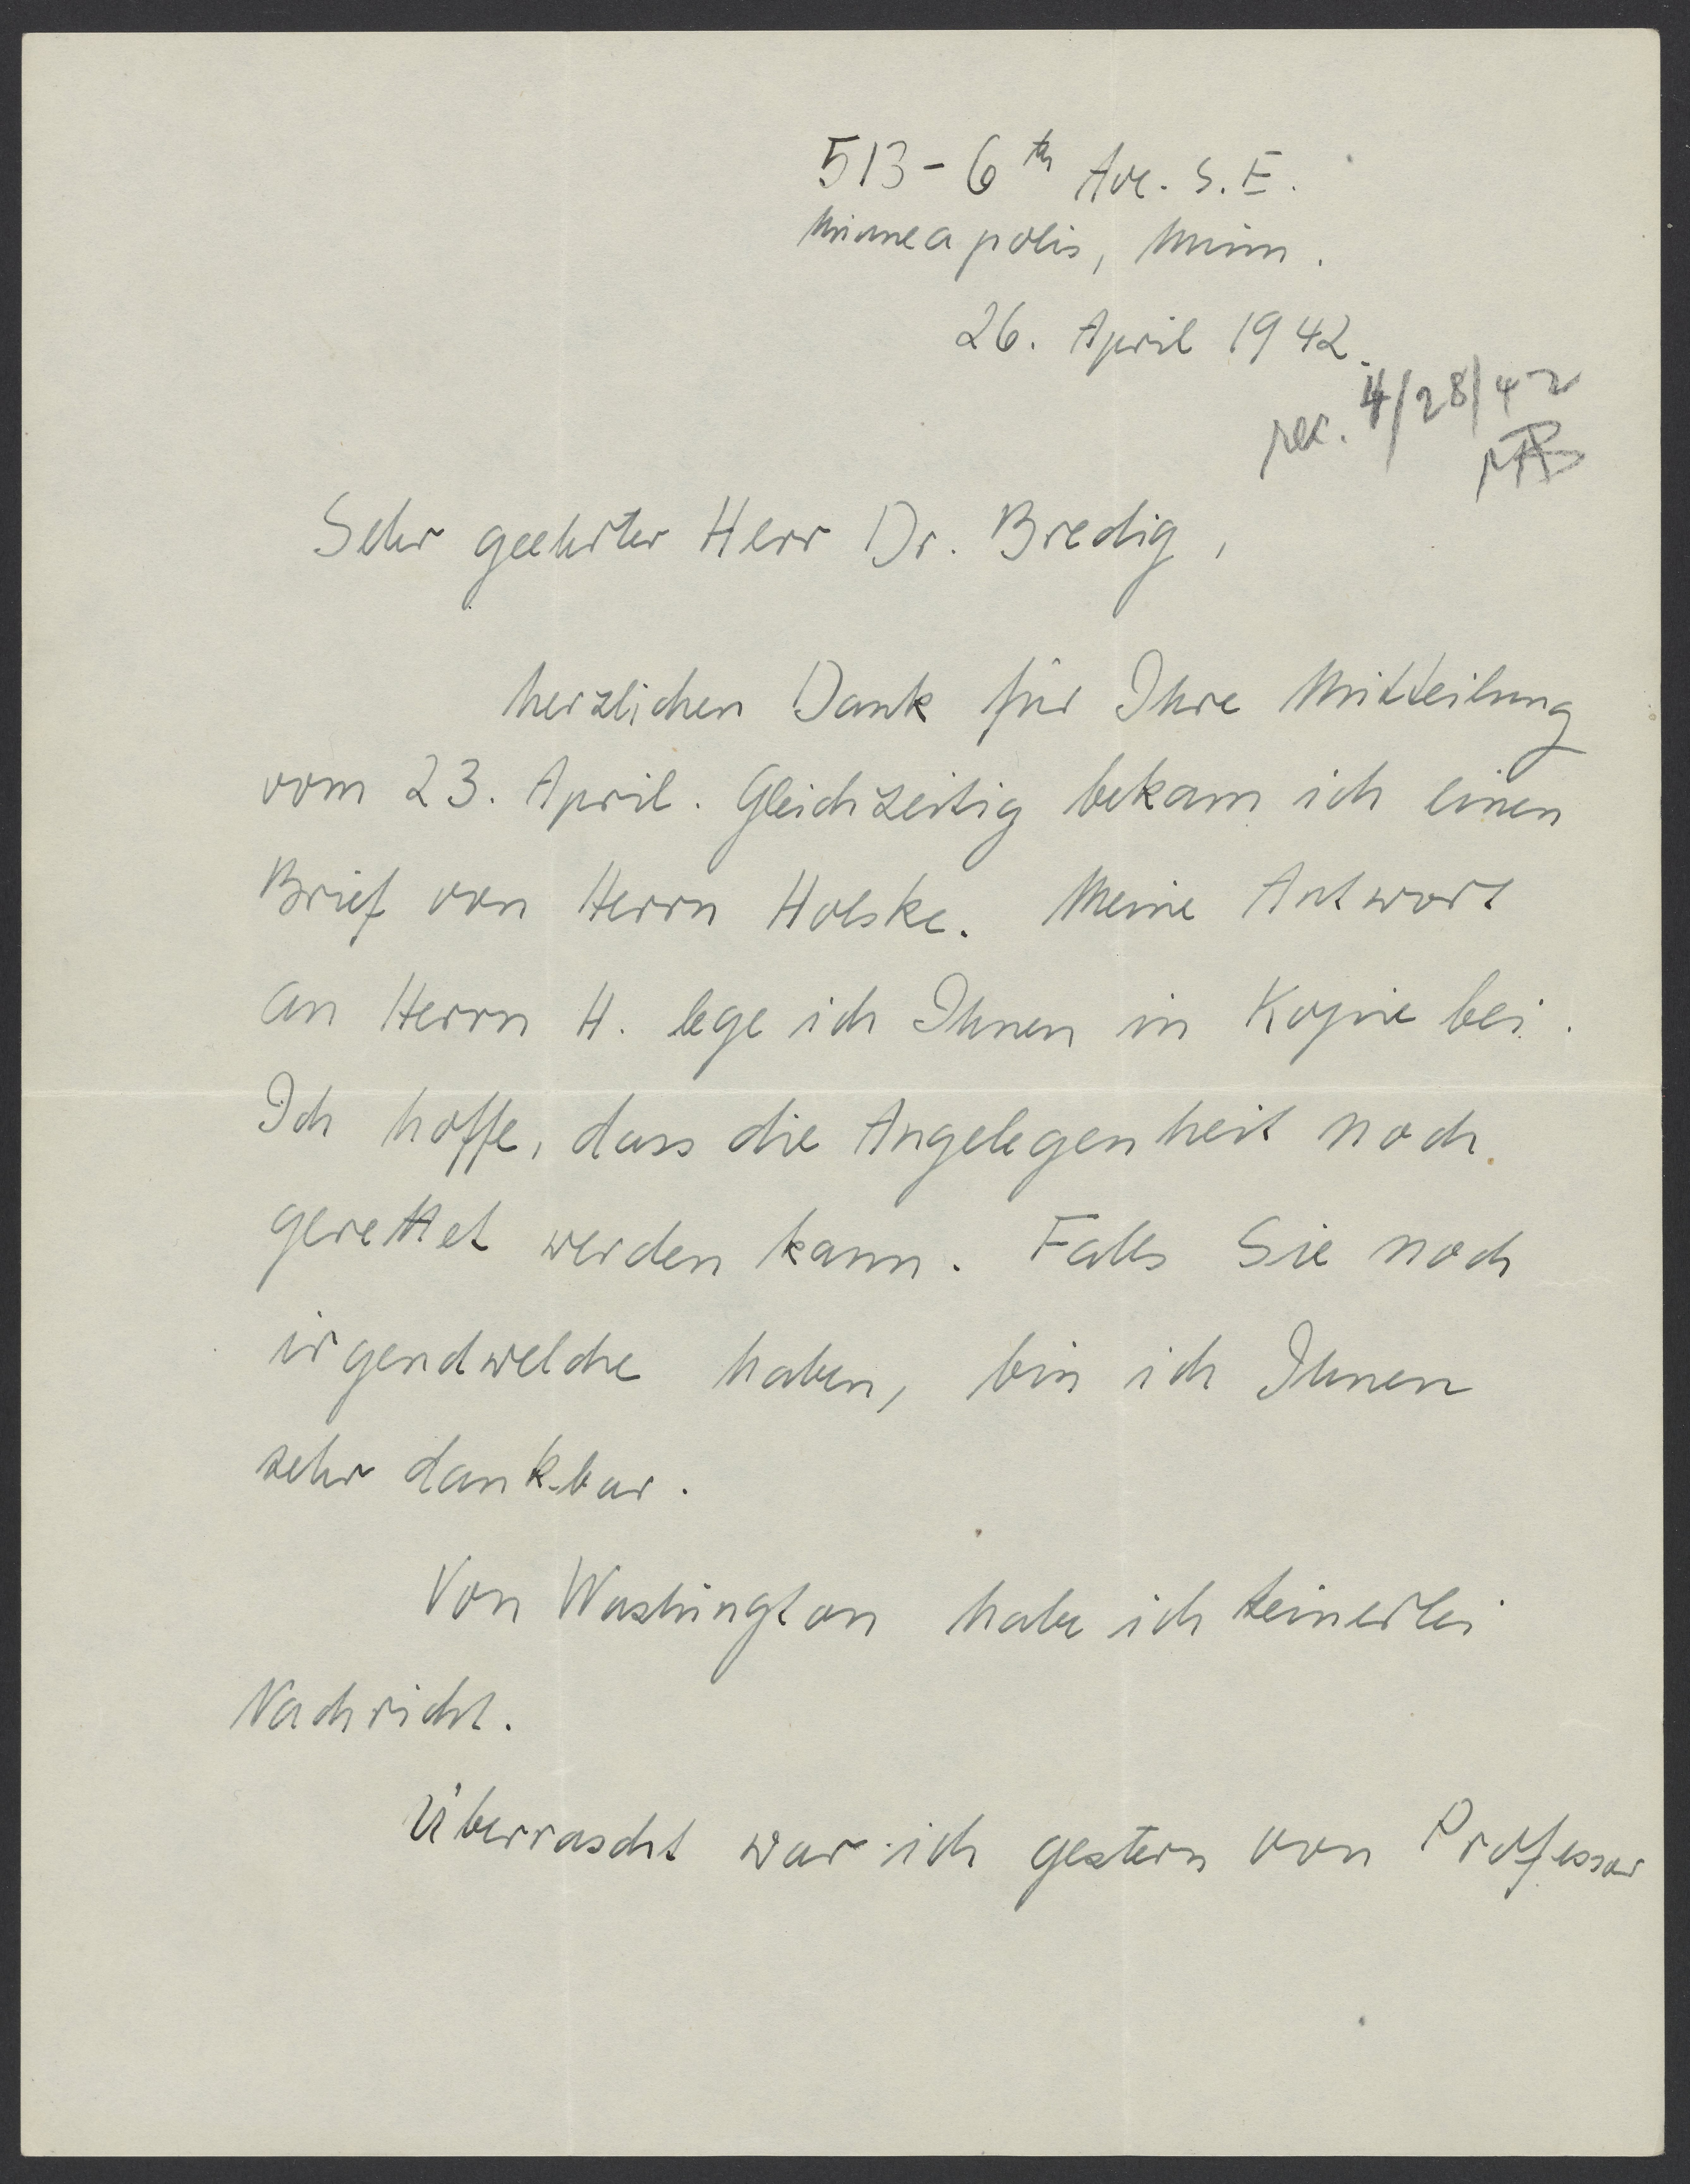 513 - 6th Ave. S.E.
Minneapolis, Minn.
26. April 1942.
rec. 4/28/42
MAB
Sehr geehrter Herr Dr. Bredig,
herzlichen Dank für Ihre Mitteilung
vom 23. April. Gleichzeitig bekam ich einen
Brief von Herrn Holske. Meine Antwort
an Herrn H. lege ich Ihnen in Kopie bei.
Ich hoffe, dass die Angelegenheit noch
gerettet werden kann. Falls Sie noch
irgendwelche haben, bin ich Ihnen
sehr dankbar.
Von Washington habe ich keinerlei
Nachricht.
Überrascht war ich gestern von Professor